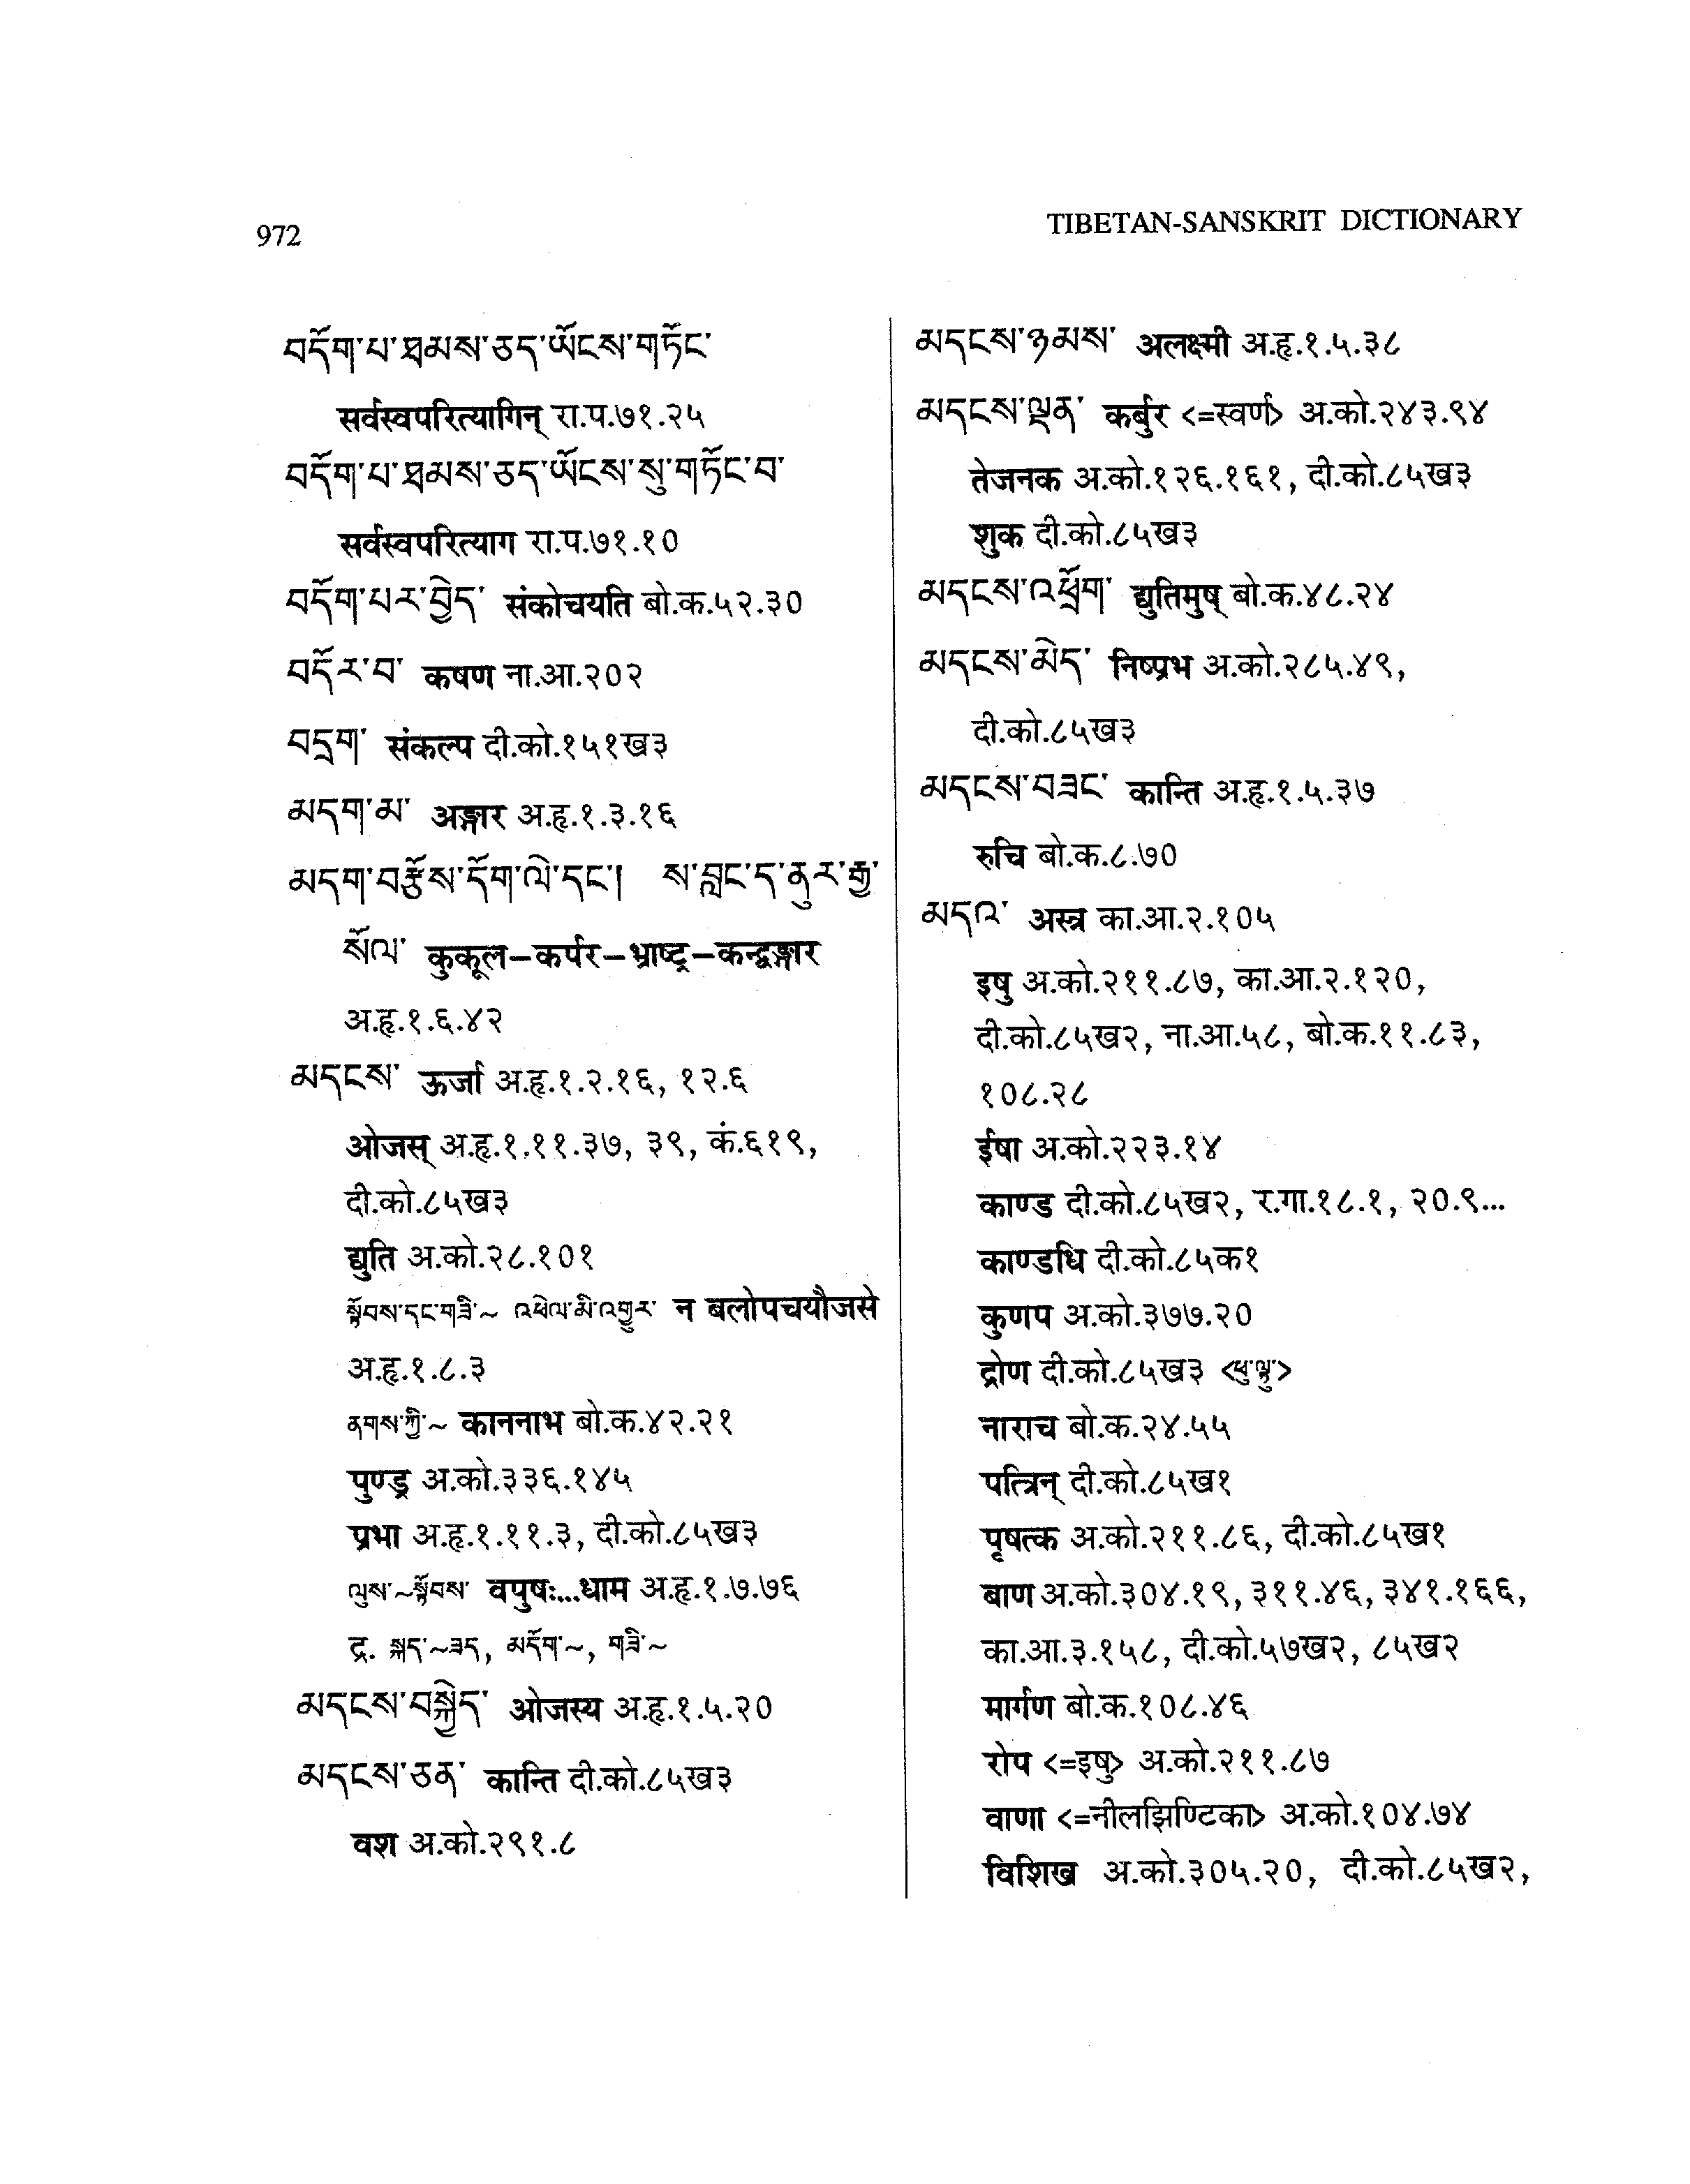 972
TIBETAN-SANSKRIT DICTIONARY
བདོག་པ་ཐམས་ཅད་ཡོངས་གཏོང་
सर्वस्वपरित्यागिन् रा.प.७१.२५
བདོག་པ་ཐམས་ཅད་ཡོངས་སུ་གཏོང་བ་
सर्वस्वपरित्याग रा.प.७१.१०
བདོག་པར་བྱེད་ संकोचयति बो.क.५२.३०
བདོར་བ་ कषण ना.आ.२०२
བདྲག་ संकल्प दी.को.१५१ख३
མདག་མ་ अङ्गार अ.हृ.१.३.१६
མདག་བརྩོས་དོག་ལེ་དང་། ས་བླང་ད་ནུར་རྒྱ་
སོལ་ कुकूल–कर्पर–भ्राष्ट्र–कन्द्वङ्गार
अ.हृ.१.६.४२
མདངས་ ऊर्जा अ.हृ.१.२.१६, १२.६
ओजस् अ.हृ.१.११.३७, ३९, कं.६१९,
दी.को.८५ख३
द्युति अ.को.२८.१०१
སྟོབས་དང་གཟི་~ འཕེལ་མི་འགྱུར་ न बलोपचयौजसे
अ.हृ.१.८.३
ནགས་ཀྱི་~ काननाभ बो.क.४२.२१
पुण्ड्र अ.को.३३६.१४५
प्रभा अ.हृ.१.११.३, दी.को.८५ख३
ལུས་~སྟོབས་ वपुषः...धाम अ.हृ.१.७.७६
द्र. སྐད་~ཟད, མདོག་~, གཟི་~
མདངས་བསྐྱེད་ ओजस्य अ.हृ.१.५.२०
མདངས་ཅན་ कान्ति दी.को.८५ख३
वश अ.को.२९१.८
མདངས་ཉམས་ अलक्ष्मी अ.हृ.१.५.३८
མདངས་ལྡན་ कर्बुर <=स्वर्ण> अ.को.२४३.९४
तेजनक अ.को.१२६.१६१, दी.को.८५ख३
शुक दी.को.८५ख३
མདངས་འཕྲོག་ द्युतिमुष् बो.क.४८.२४
མདངས་མེད་ निष्प्रभ अ.को.२८५.४९,
दी.को.८५ख३
མདངས་བཟང་ कान्ति अ.हृ.१.५.३७
रुचि बो.क.८.७०
མདའ་ अस्त्र का.आ.२.१०५
इषु अ.को.२११.८७, का.आ.२.१२०,
दी.को.८५ख२, ना.आ.५८, बो.क.११.८३,
१०८.२८
ईषा अ.को.२२३.१४
काण्ड दी.को.८५ख२, र.गा.१८.१, २०.९...
काण्डधि दी.को.८५क१
कुणप अ.को.३७७.२०
द्रोण दी.को.८५ख३
नाराच बो.क.२४.५५
पत्त्रिन् दी.को.८५ख१
पृषत्क अ.को.२११.८६, दी.को.८५ख१
बाण अ.को.३०४.१९, ३११.४६, ३४१.१६६,
का.आ.३.१५८, दी.को.५७ख२, ८५ख२
मार्गण बो.क.१०८.४६
रोप <=इषु> अ.को.२११.८७
वाणा <=नीलझिण्टिका> अ.को.१०४.७४
विशिख अ.को.३०५.२०, दी.को.८५ख२,